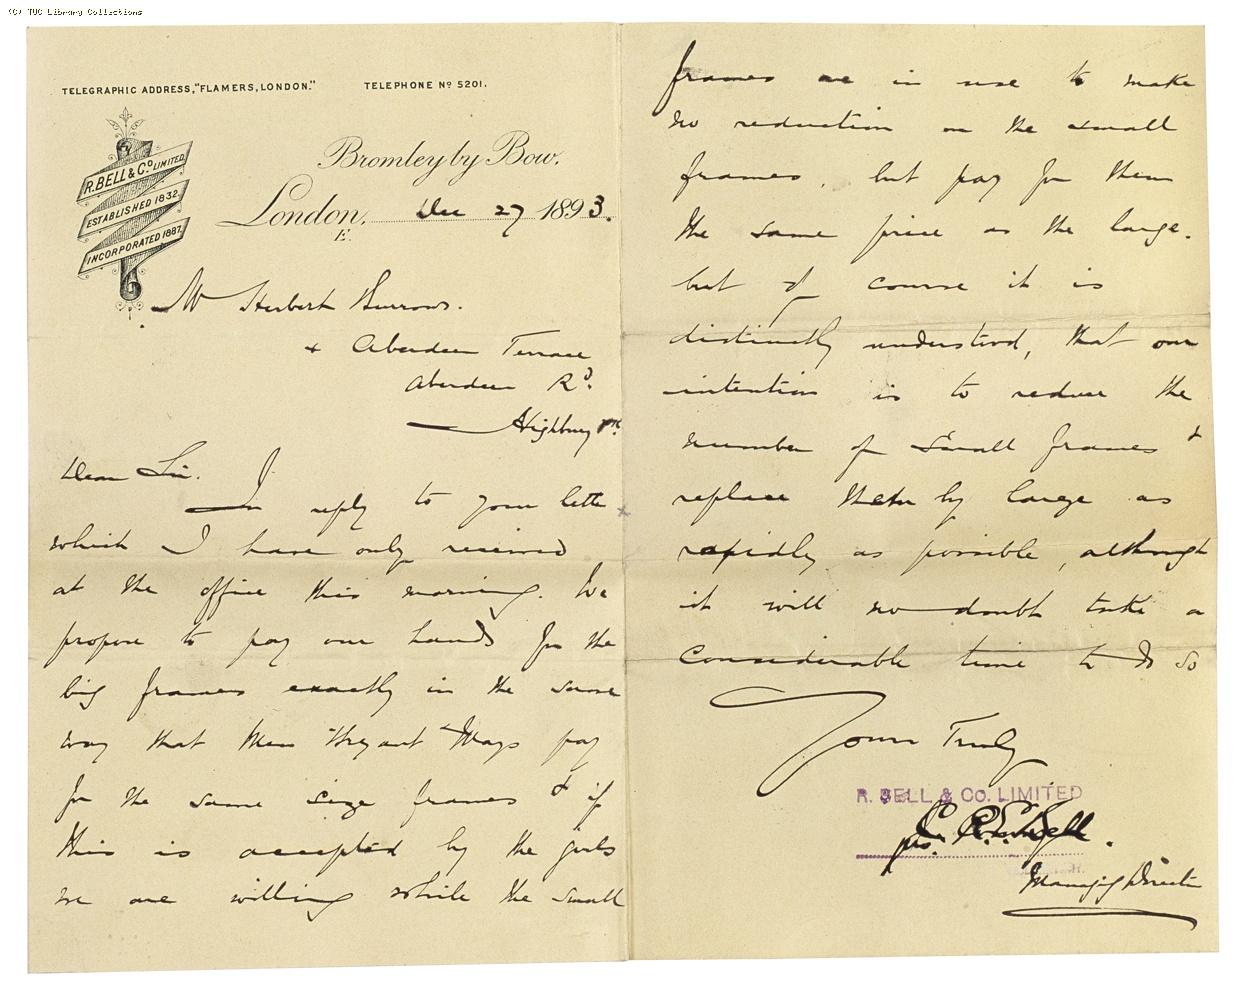 (C) TUC Library Collections
TELEGRAPHIC ADDRESS, "FLAMERS, LONDON."
TELEPHONE Nº 5201.
R. BELL & Cº LIMITED
ESTABLISHED 1832.
INCORPORATED 1887.
Bromley by Bow,
London, Dec 27 1893.
E.
Mr Herbert Burrows.
Aberdeen Terrace
Aberdeen Rd.
Highbury
Dear Sir.
In reply to your letter
which I have only received
at the office this morning. We
propose to pay our hands for the
big frames exactly in the same
way that Mess Bryant & Mays pay
for the same size frames & if
this is accepted by the girls
we are willing while the small
frames are in use to make
no reduction on the small
frames, but pay for them
the same price as the large.
but of course it is
distinctly understood, that our
intention is to reduce the
number of small frames &
replace them by large as
rapidly as possible, although
it will no doubt take a
considerable time to do so
Yours Truly
R. BELL & CO. LIMITED
Bell.
Managing Director